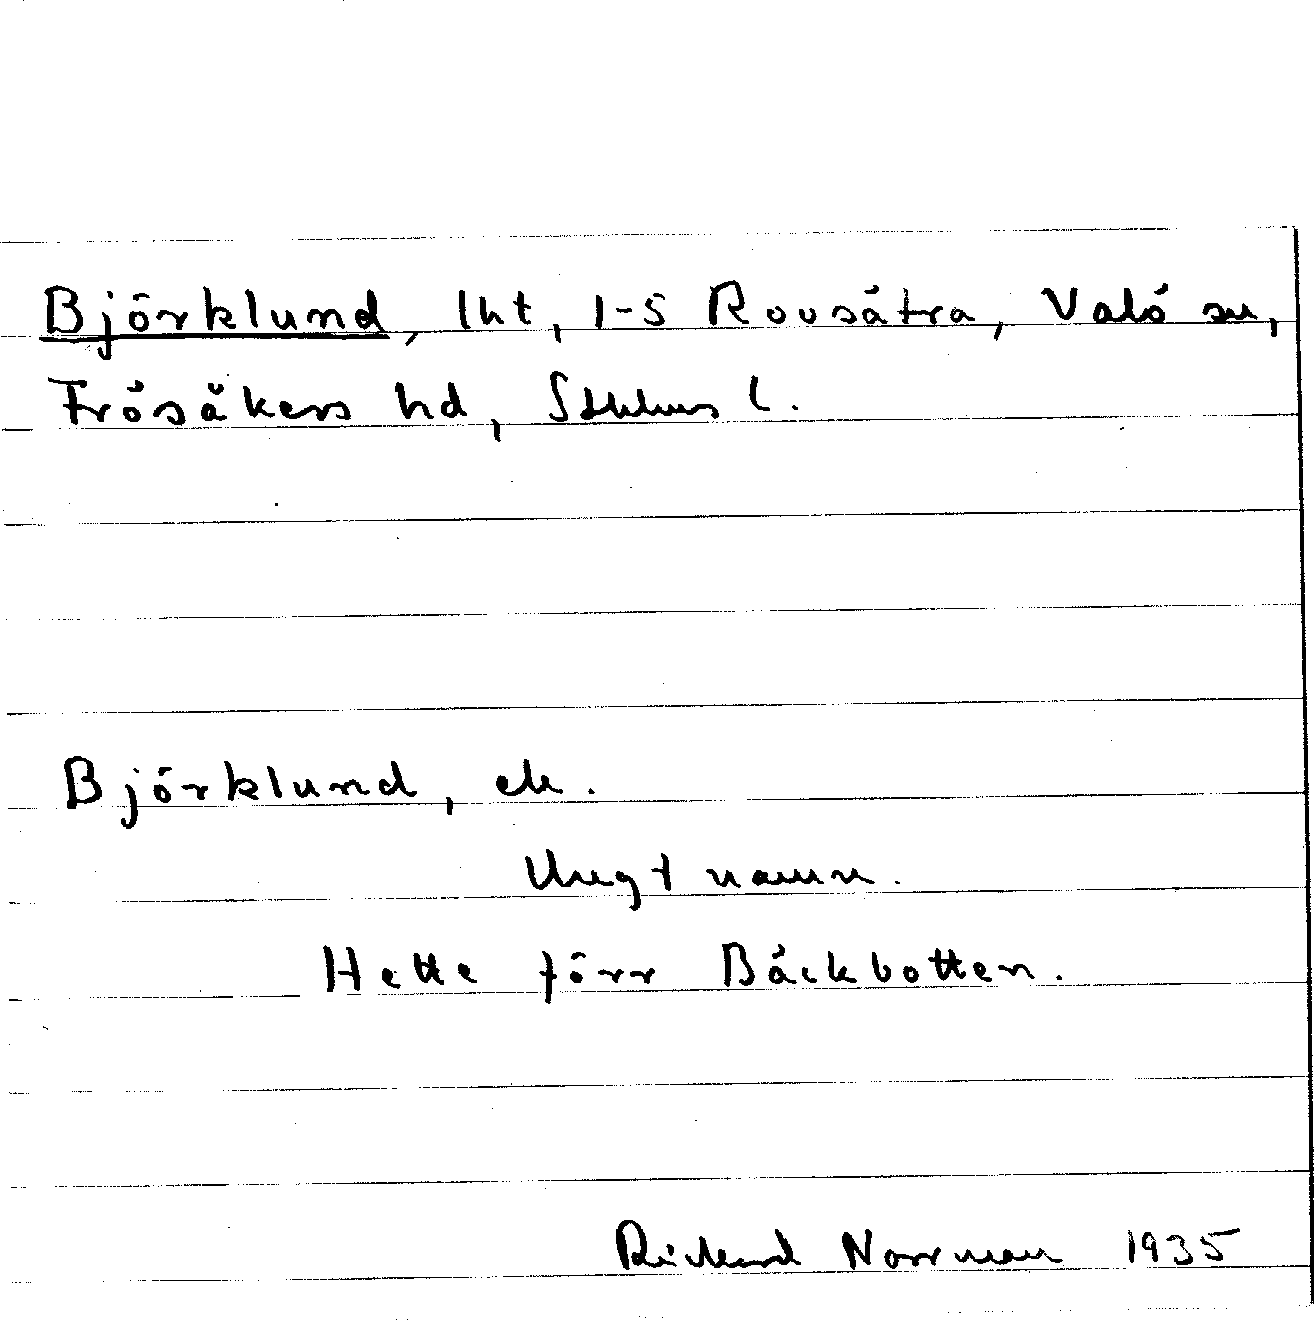 Björklund, lht, 1-5 Rovsätra, Valö sn,
Frösåkers hd, Sthlms l.
Björklund, ele.
Ungt namn.
Hette förr Bäckbotten.
Rickard Norrman 1935